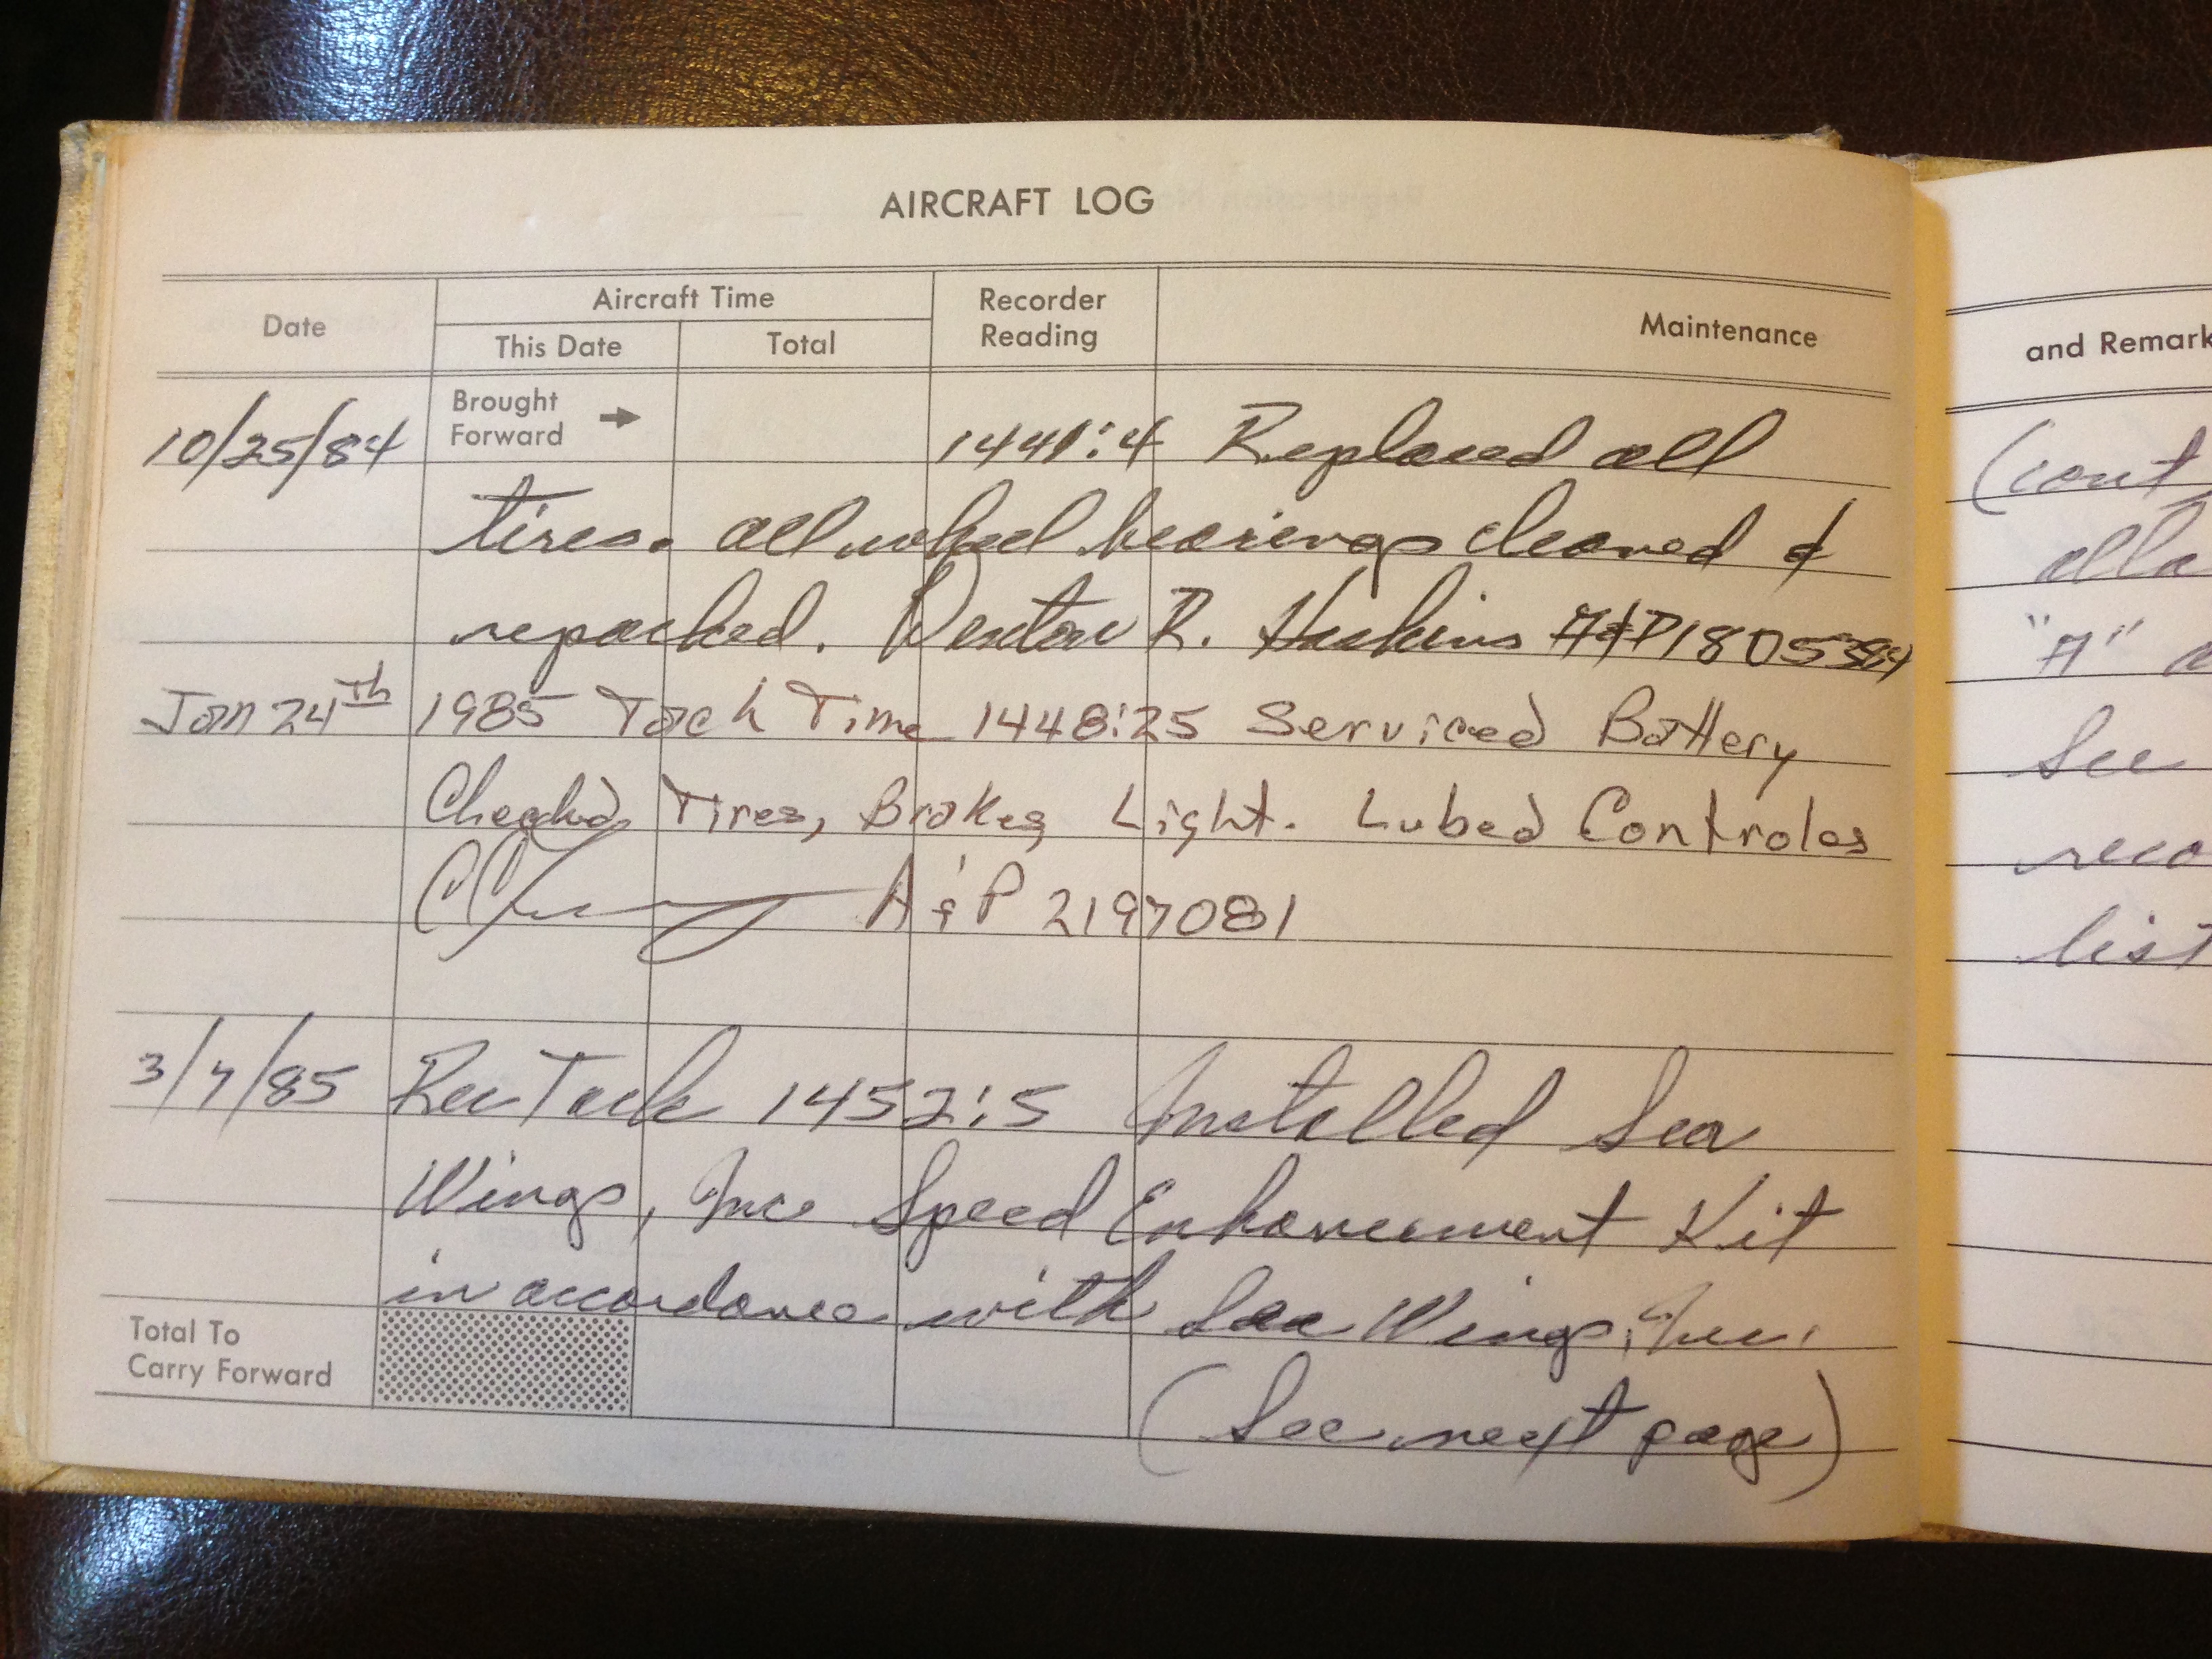 AIRCRAFT LOG
Date
Aircraft Time
This Date Total
Recorder
Reading
Maintenance
10/25/84 Brought
Forward → 1441:4 Replaced all
tires. all wheel bearings cleaned &
repacked. Denton R. A&P
Jan 24th 1985 Tach Time 1448:25 Serviced Battery
Checked Tires, Brakes, Light. Lubed Controles
A&P 2197081
3/7/85 Rec Tach 1452:5 Installed Sea
Wings, Inc Speed Enhancement Kit
in accordance with Sea Wings, Inc.
Total To
Carry Forward
(See next page)
and Remark
(cont
alla
"A" a
See
reco
list